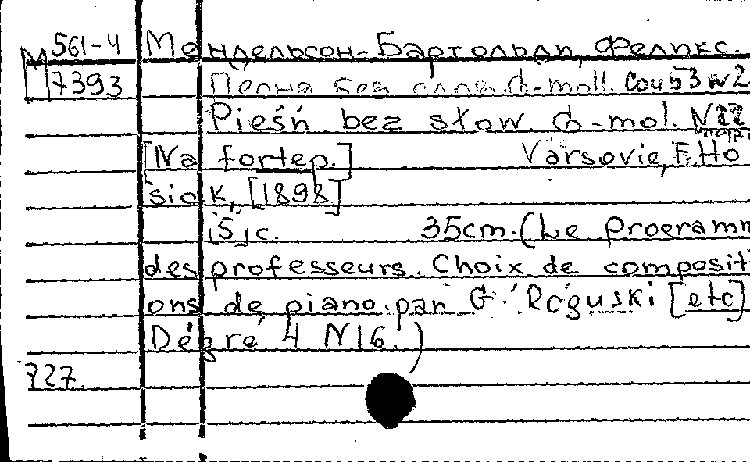 М 561-4 Мендельсон-Бартольди, Феликс.
7393 Песня без слов G-moll. Соч 53 N2
Pieśń bez słow G-mol. N22
[Na fortep.] Varsovie, F. Ho
siok, [1898]
5, c. 35cm. (Le Programm
des professeurs. Choix de composit
ons de piano par G. Roguski [etc]
Dégré 4 N16.)
727.